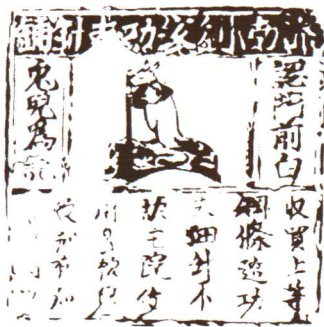 濟南劉家功夫針鋪
認門前白
兔兒為記
收買上等
鋼條造功
夫細針不
宅院使
用
有加